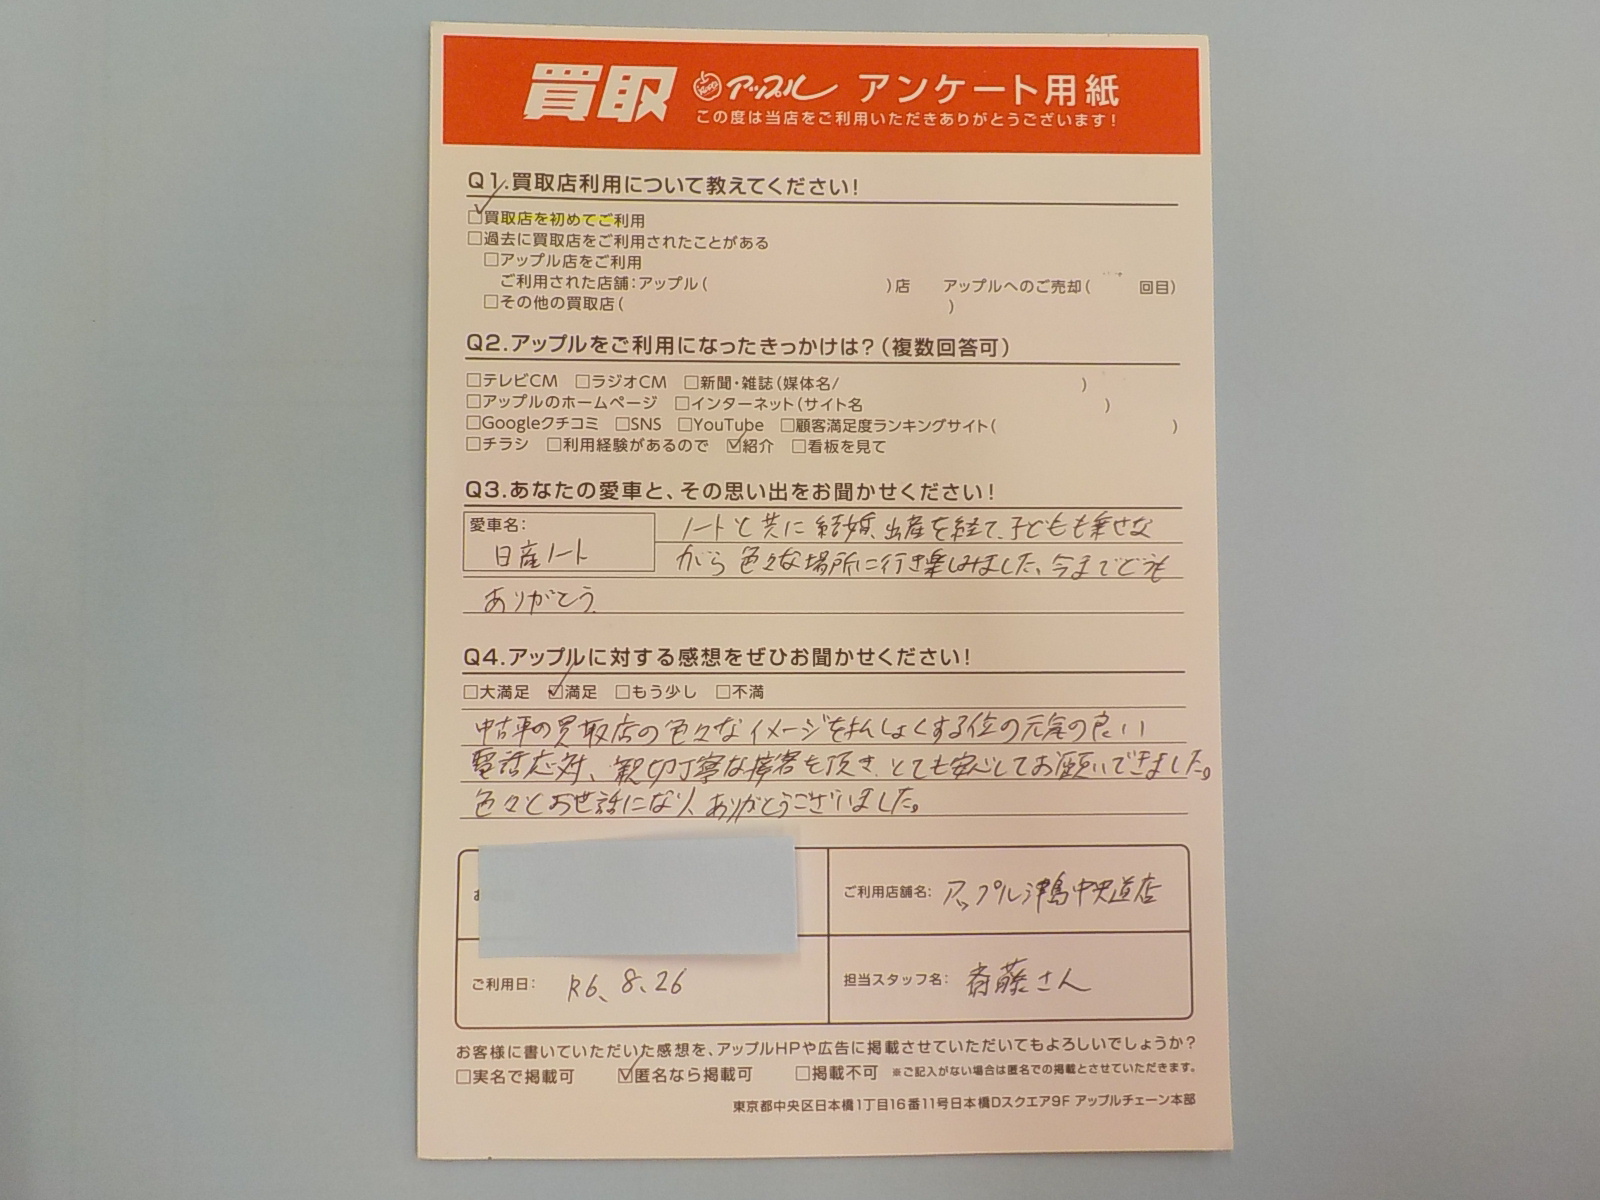 買取 アップル アンケート用紙
この度は当店をご利用いただきありがとうございます!
Q1.買取店利用について教えてください!
☑買取店を初めてご利用
□過去に買取店をご利用されたことがある
□アップル店をご利用
ご利用された店舗:アップル( )店 アップルへのご売却( 回目)
□その他の買取店( )
Q2.アップルをご利用になったきっかけは?(複数回答可)
□テレビCM □ラジオCM □新聞・雑誌(媒体名/ )
□アップルのホームページ □インターネット(サイト名 )
□Googleクチコミ □SNS □YouTube □顧客満足度ランキングサイト( )
□チラシ □利用経験があるので ☑紹介 □看板を見て
Q3.あなたの愛車と、その思い出をお聞かせください!
愛車名:
日産ノート
ノートと共に結婚、出産を経て、子どもも乗せな
がら色々な場所に行き楽しみました、今までどうも
ありがとう。
Q4.アップルに対する感想をぜひお聞かせください!
□大満足 ☑満足 □もう少し □不満
中古車の買取店の色々なイメージをふっしょくする位の元気の良い
電話応対、親切丁寧な接客を頂き、とても安心してお願いできました。
色々とお世話になり、ありがとうございました。
ご利用店舗名: アップル津島中央道店
ご利用日: R6、8、26
担当スタッフ名: 斉藤さん
お客様に書いていただいた感想を、アップルHPや広告に掲載させていただいてもよろしいでしょうか?
□実名で掲載可 ☑匿名なら掲載可 □掲載不可 ※ご記入がない場合は匿名での掲載とさせていただきます。
東京都中央区日本橋1丁目16番11号日本橋Dスクエア9F アップルチェーン本部